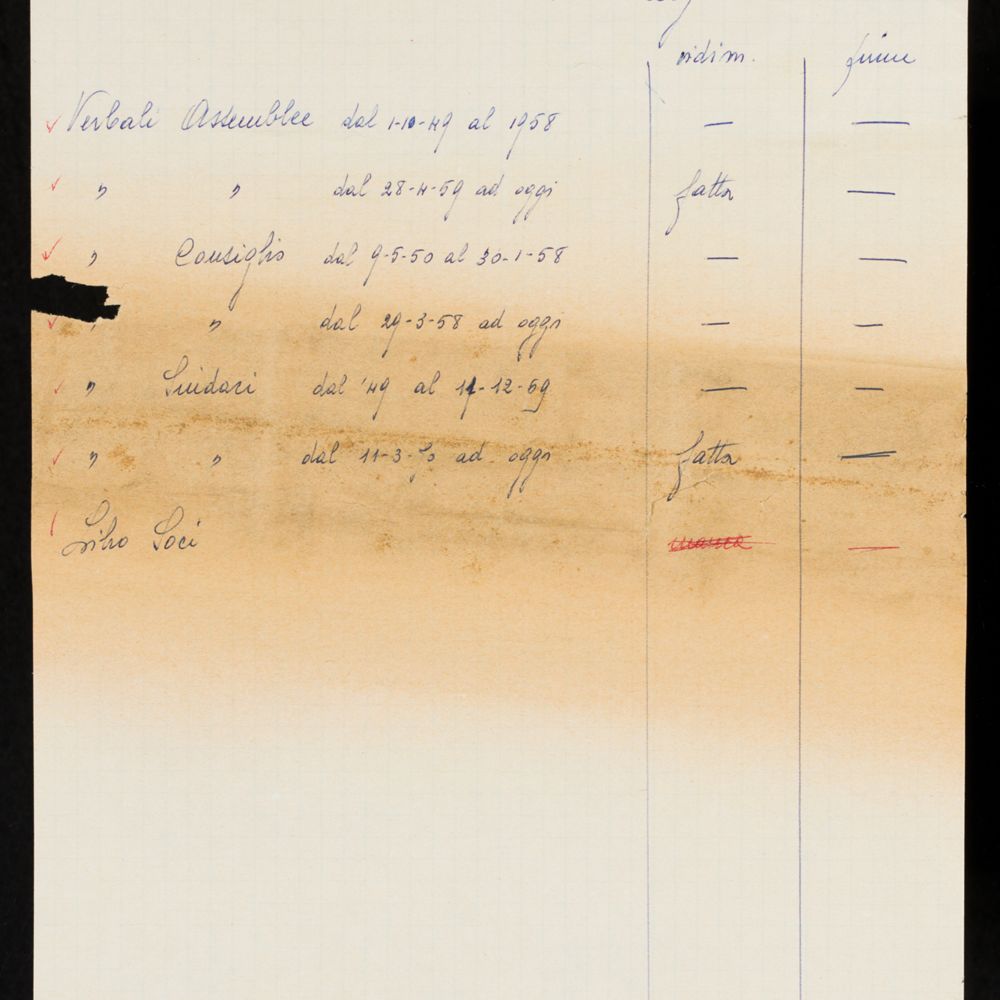 vidim. firme
Verbali Assemblee dal 1-10-49 al 1958 — —
" " dal 28-4-59 ad oggi fatto —
" Consiglio dal 9-5-50 al 30-1-58 — —
" " dal 29-3-58 ad oggi — —
" Sindaci dal '49 al 11-12-59 — —
" " dal 11-3-70 ad oggi fatto —
Libro Soci manca —